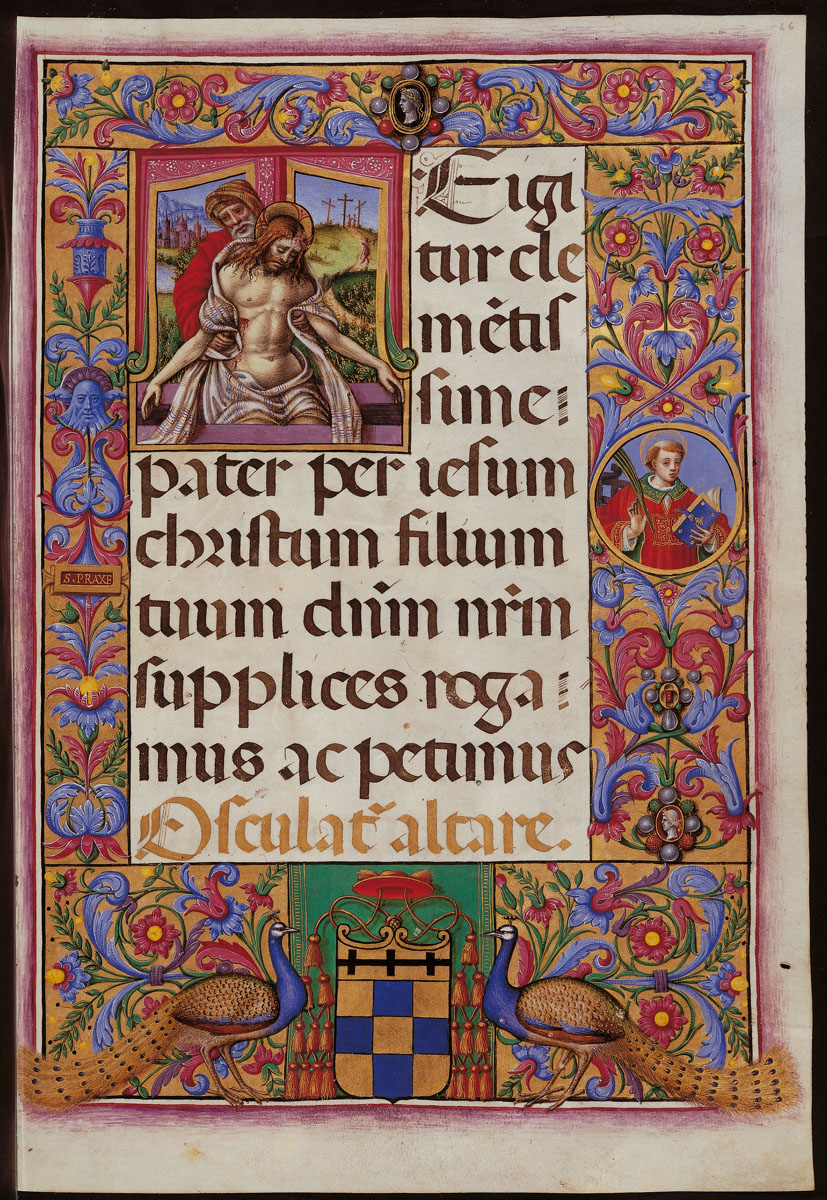 66
E igi
tur cle
mētis
sime:
pater per iesum
christum filium
tuum dn̄m nr̄m
supplices roga:
mus ac petimus
Osculat᷑ altare.
S. PRAXE